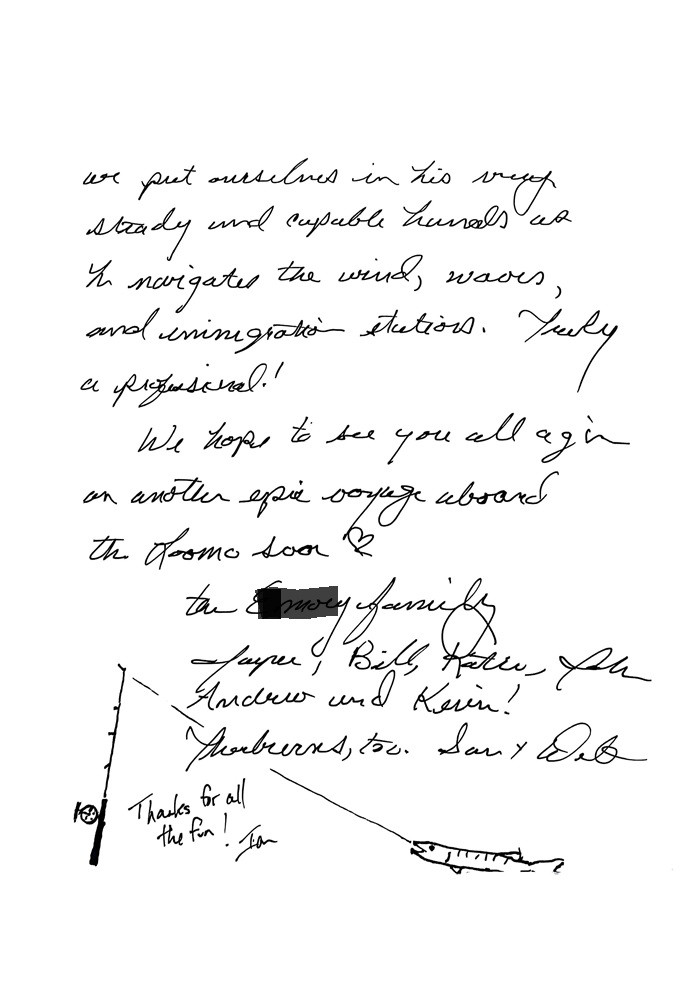 we put ourselves in his very
steady and capable hands as
he navigates the wind, waves,
and immigration stations. Truly
a professional!
We hope to see you all agin
on another epic voyage aboard
the Loomo soon ♡
the family
Jayne, Bill, Katie,
Andrew and Kevin!
too. Dan + Deb
Thanks for all
the fun! Ian